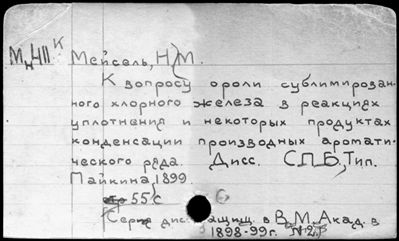 М. 411 К
Мейсель, Н. М.
К вопросу о роли сублимирован-
ного хлорного железа в реакциях
уплотнения и некоторых продуктах
конденсации производных аромати-
ческого ряда. Дисс. С.П.Б., Тип.
Пайкина, 1899.
55 с
Серия дис. защищ. в В. М. Акад. в
1898-99 г. №2.